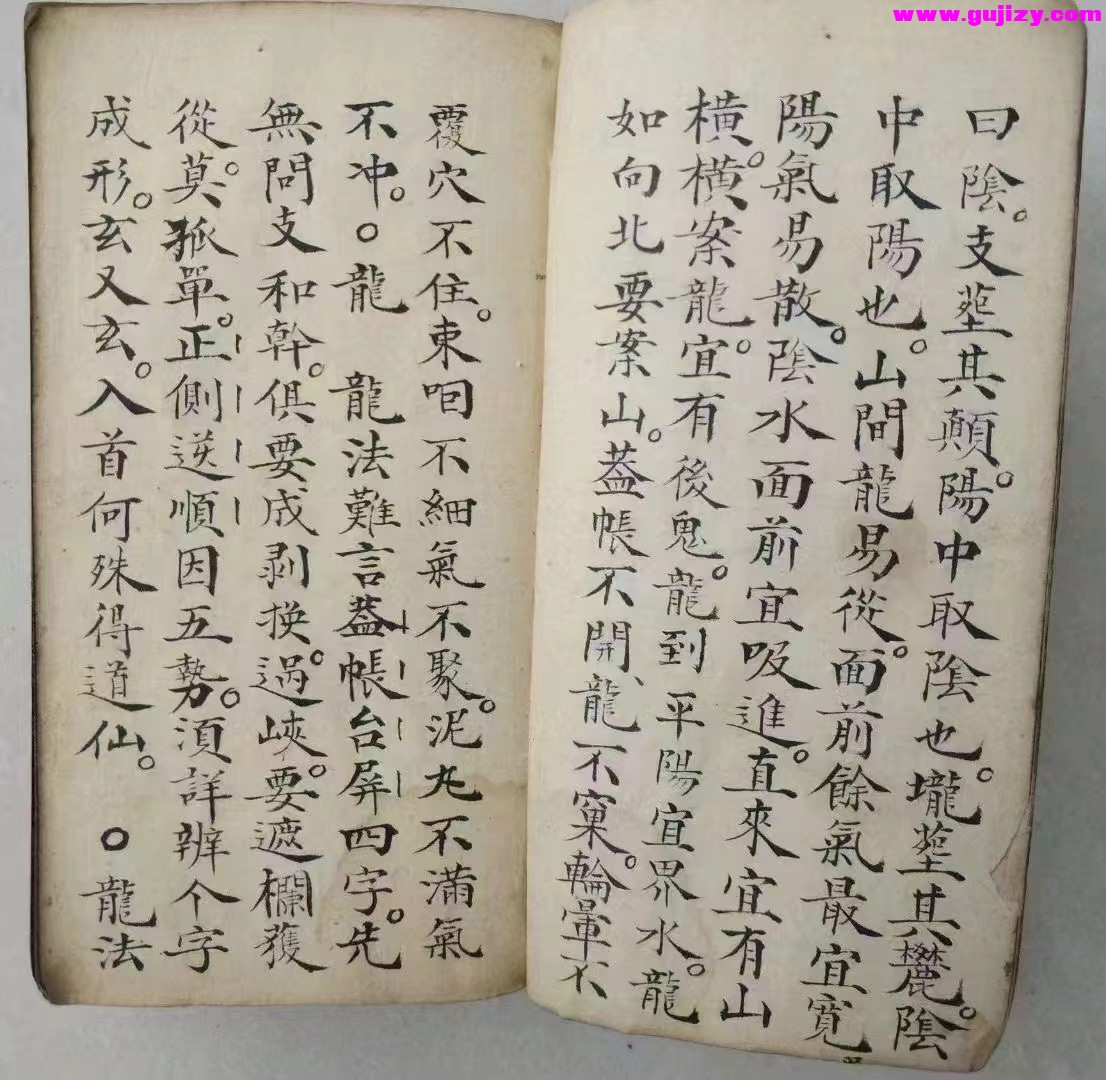 www.gujizy.com
曰陰。支塟其顛。陽中取陰也。壠塟其麓。陰
中取陽也。山間龍易從。面前餘氣最宜寬
陽氣易散。陰水面前宜吸進。直來宜有山
橫。橫案龍宜。有後鬼。龍到平陽宜界水。龍
如向北要案山。蓋帳不開、龍不窠。輪暈不
覆穴不住。束咽不細氣不聚。泥丸不滿氣
不冲。○龍　龍法難言蓋帳台屏四字。先
無問支和幹。俱要成剥換。過峽。要遮欄獲
從。莫孤單。正側逆順因五勢。須詳辨个字
成形。玄又玄。入首何殊得道仙。○龍法